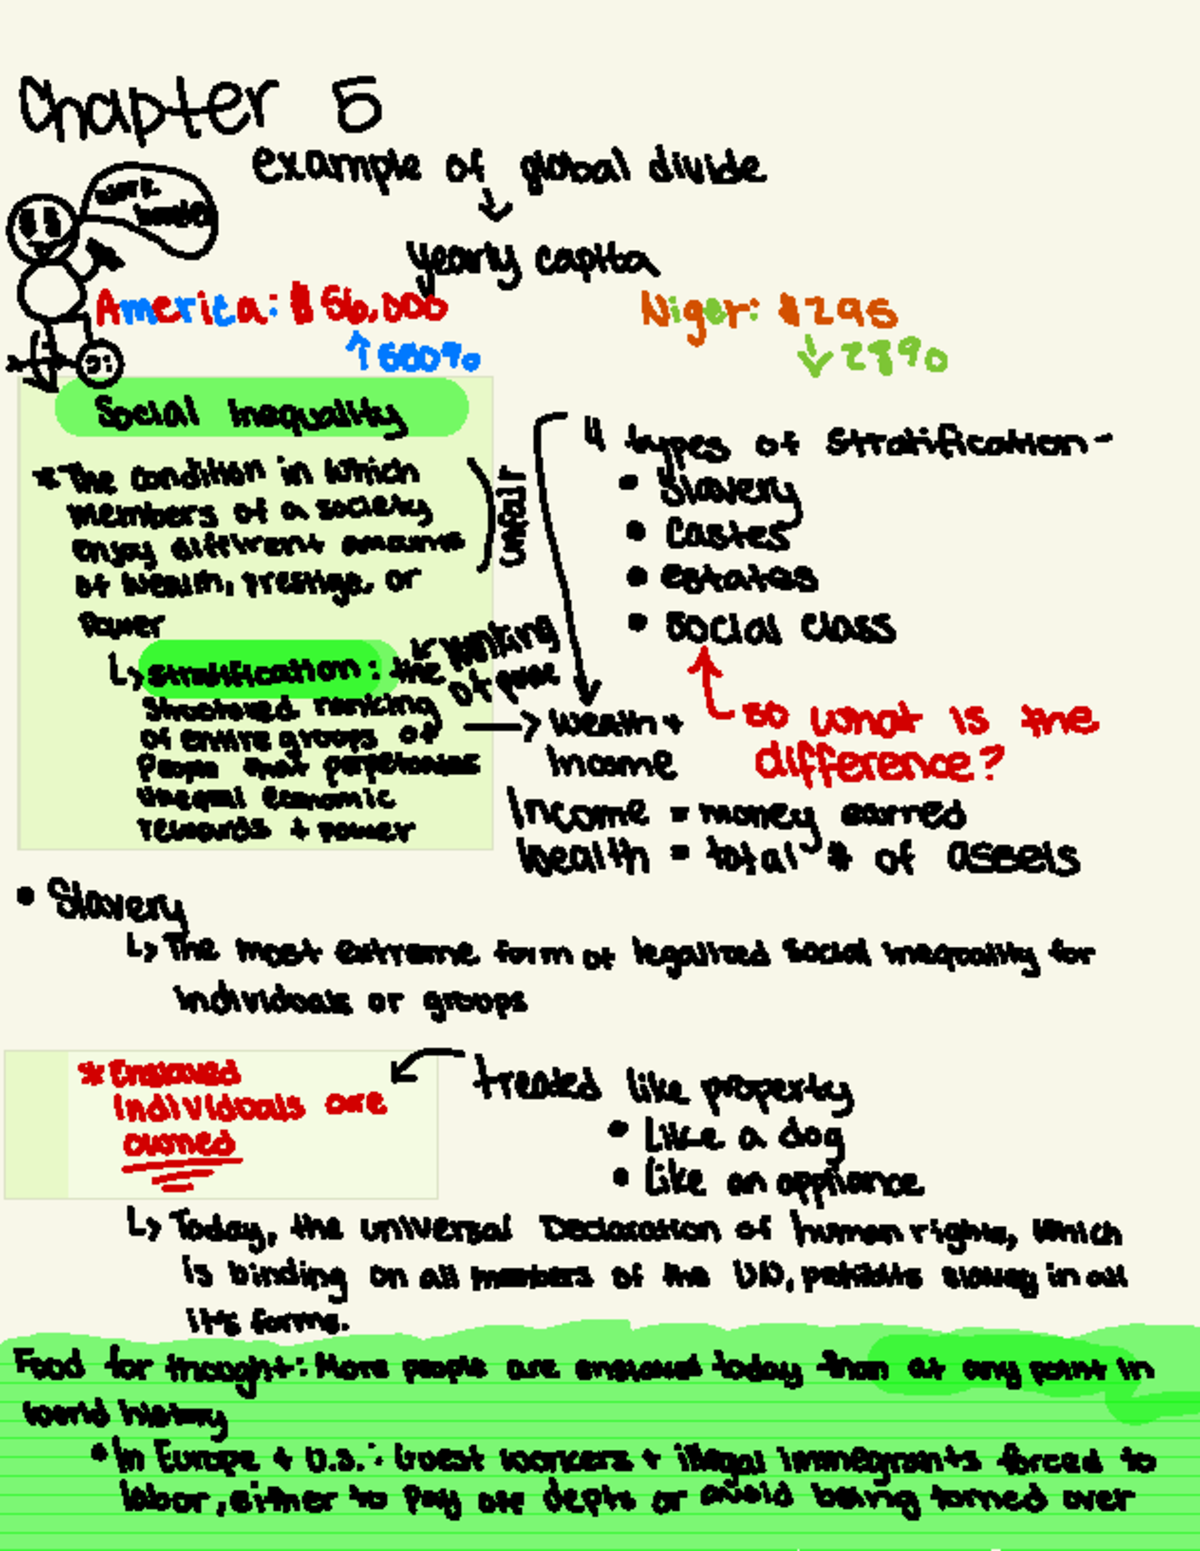 Chapter 5
example of global divide
work harder
yearly capita
America: $56,000
Niger: $295
↑ 60%
↓ 28%
Social Inequality
* The condition in which
members of a society
enjoy different amounts
of wealth, prestige, or
power
unfair
↳ Stratification: the
structured ranking
of entire groups of
people that perpetuates
unequal economic
rewards + power
ranking
of
4 types of stratification-
• Slavery
• Castes
• estates
• social class
so what is the
difference?
→ wealth +
income
Income = money earned
Wealth = total # of assets
• Slavery
↳ The most extreme form of legalized social inequality for
individuals or groups
* Enslaved
individuals are
owned
treated like property
• Like a dog
• like an appliance
↳ Today, the universal Declaration of human rights, which
is binding on all members of the UN, prohibits slavery in all
it's forms.
Food for thought: More people are enslaved today than at any point in
world history
• In Europe + U.S.: Guest workers + illegal immegrants forced to
labor, either to pay off depts or avoid being turned over